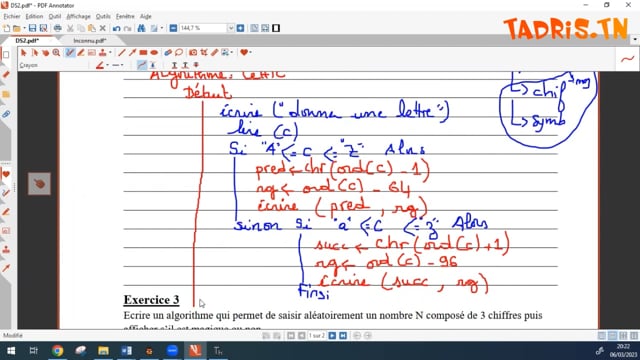 DS2.pdf* - PDF Annotator
TADRIS.TN
Fichier Edition Affichage Insérer Annotation Outils Fenêtre Aide
144,7 %
DS2.pdf* Inconnu.pdf*
Crayon
Algorithme: Lettre
Début
chif
symb
écrire ("donna une lettre:")
lire (c)
Si "A" <= c <= "Z" Alors
pred ← chr(ord(c) - 1)
rg ← ord(c) - 64
écrire (pred, rg)
sinon Si "a" <= c <= "z" Alors
succ ← chr(ord(c)+1)
rg ← ord(c) - 96
écrire (succ, rg)
Finsi
Exercice 3
Ecrire un algorithme qui permet de saisir aléatoirement un nombre N composé de 3 chiffres puis
afficher s'il est magique ou non.
Modifié
1 sur 2
20:22
06/03/2023